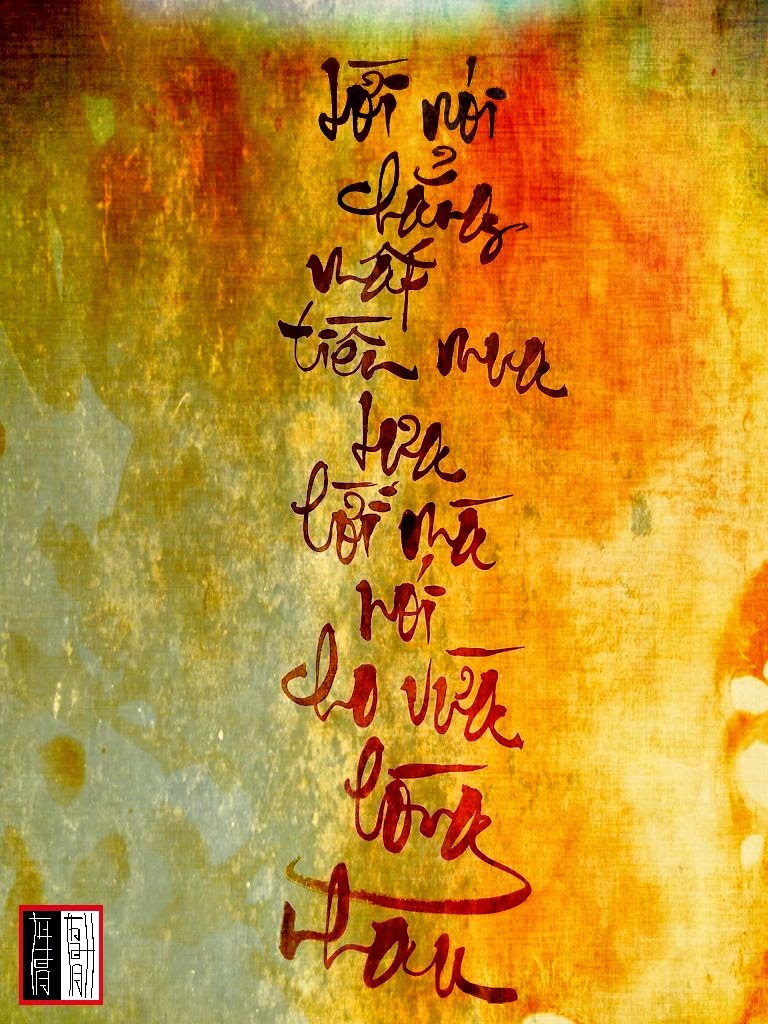 lời nói
chẳng
mất
tiền mua
lựa
lời mà
nói
cho vừa
lòng
nhau